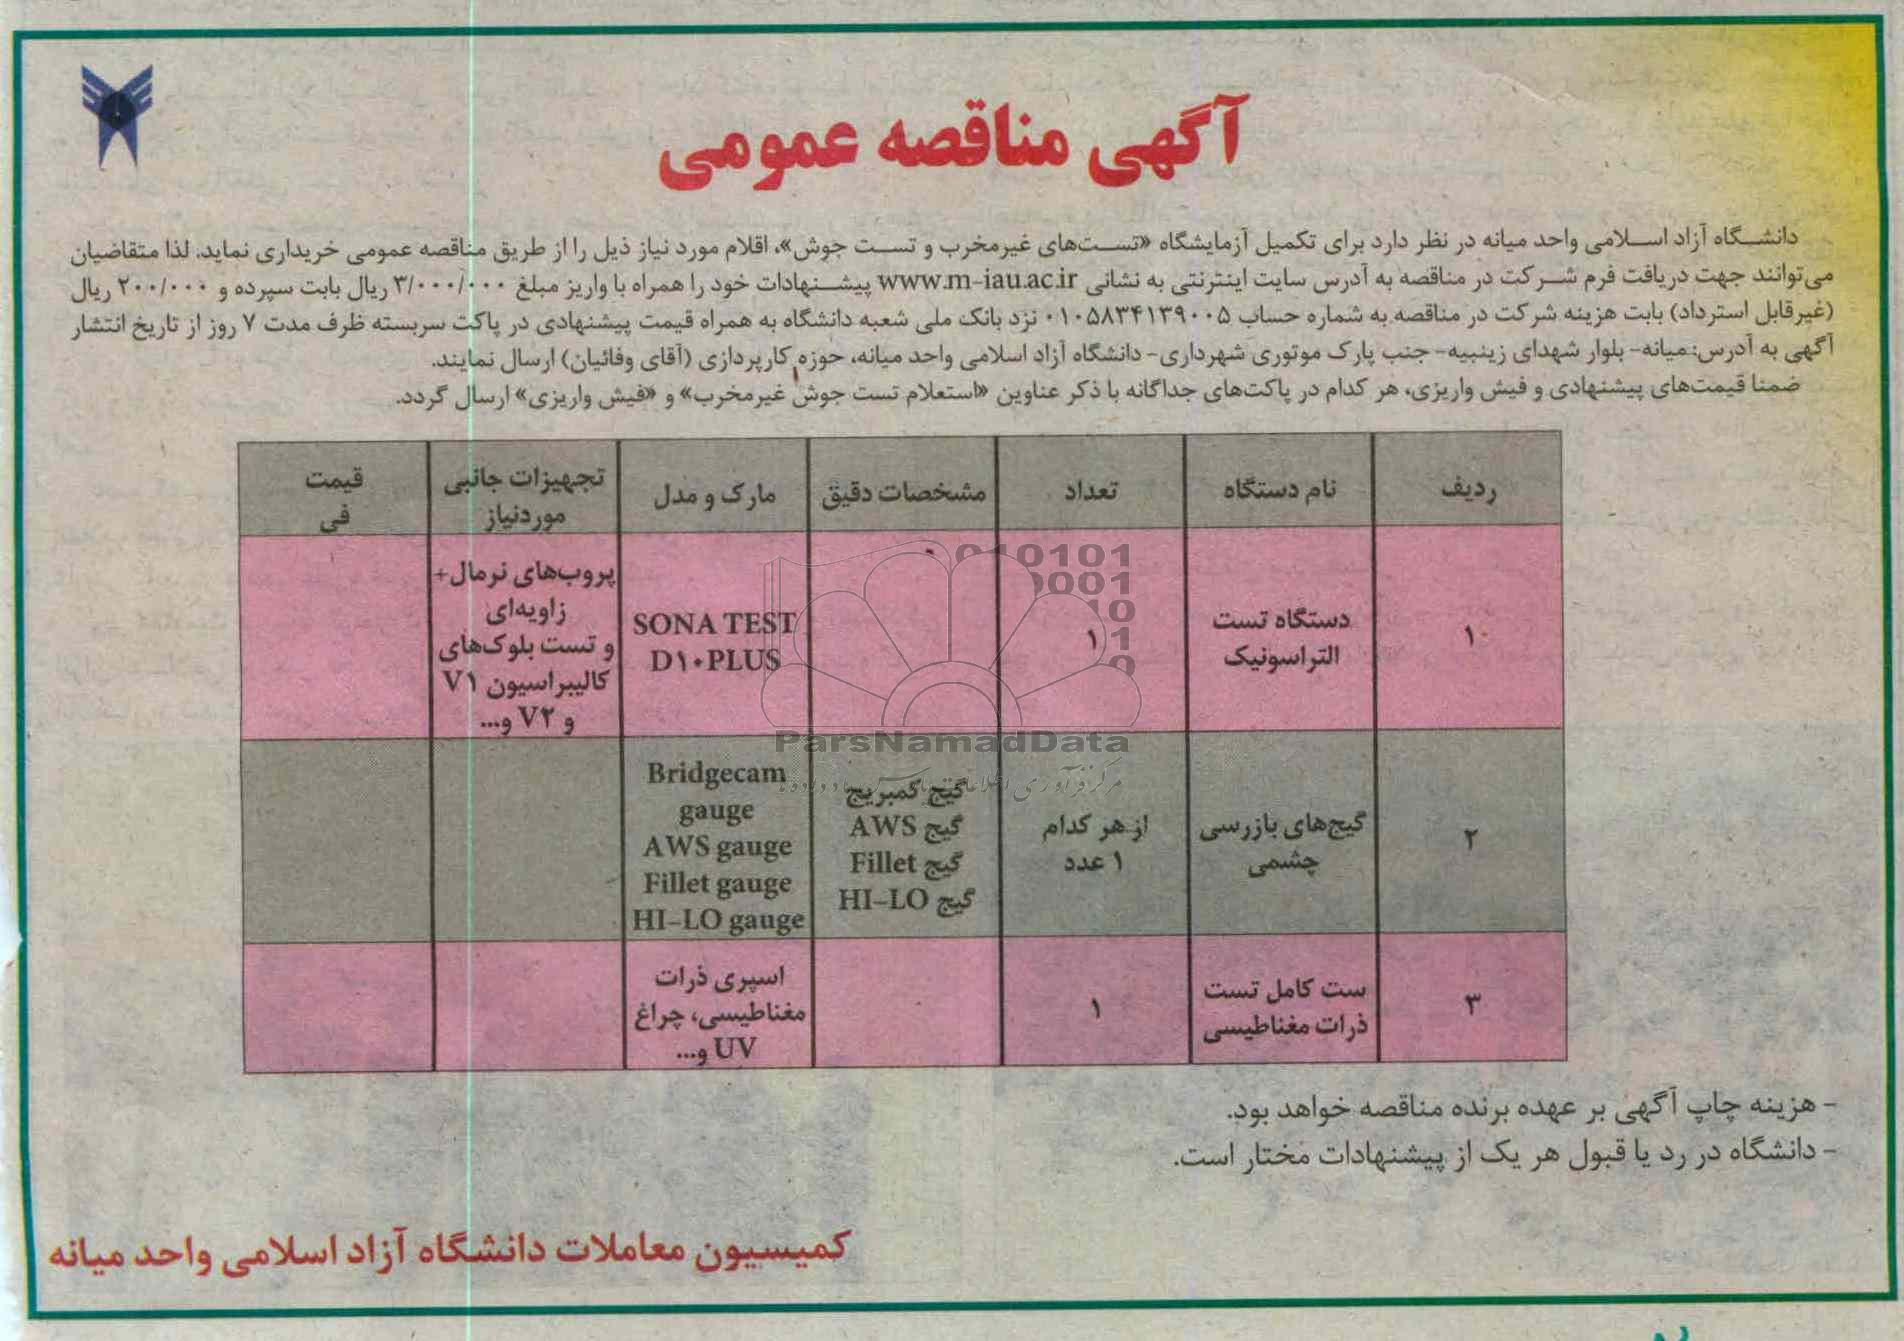 آگهی مناقصه عمومی
دانشگاه آزاد اسلامی واحد میانه در نظر دارد برای تکمیل آزمایشگاه «تست‌های غیرمخرب و تست جوش»، اقلام مورد نیاز ذیل را از طریق مناقصه عمومی خریداری نماید. لذا متقاضیان
می‌توانند جهت دریافت فرم شرکت در مناقصه به آدرس سایت اینترنتی به نشانی www.m-iau.ac.ir پیشنهادات خود را همراه با واریز مبلغ ۳/۰۰۰/۰۰۰ ریال بابت سپرده و ۲۰۰/۰۰۰ ریال
(غیرقابل استرداد) بابت هزینه شرکت در مناقصه به شماره حساب ۰۱۰۵۸۳۴۱۳۹۰۰۵ نزد بانک ملی شعبه دانشگاه به همراه قیمت پیشنهادی در پاکت سربسته ظرف مدت ۷ روز از تاریخ انتشار
آگهی به آدرس: میانه- بلوار شهدای زینبیه- جنب پارک موتوری شهرداری- دانشگاه آزاد اسلامی واحد میانه، حوزه کارپردازی (آقای وفائیان) ارسال نمایند.
ضمنا قیمت‌های پیشنهادی و فیش واریزی، هر کدام در پاکت‌های جداگانه با ذکر عناوین «استعلام تست جوش غیرمخرب» و «فیش واریزی» ارسال گردد.
ردیف
نام دستگاه
تعداد
مشخصات دقیق
مارک و مدل
تجهیزات جانبی
موردنیاز
قیمت
فی
۱
دستگاه تست
التراسونیک
۱
SONA TEST
D۱۰PLUS
پروب‌های نرمال+
زاویه‌ای
و تست بلوک‌های
کالیبراسیون V۱
و V۲ و...
۲
گیج‌های بازرسی
چشمی
از هر کدام
۱ عدد
گیج کمبریج
گیج AWS
گیج Fillet
گیج HI-LO
Bridgecam
gauge
AWS gauge
Fillet gauge
HI-LO gauge
۳
ست کامل تست
ذرات مغناطیسی
۱
اسپری ذرات
مغناطیسی، چراغ
UV و...
ParsNamadData
- هزینه چاپ آگهی بر عهده برنده مناقصه خواهد بود.
- دانشگاه در رد یا قبول هر یک از پیشنهادات مختار است.
کمیسیون معاملات دانشگاه آزاد اسلامی واحد میانه